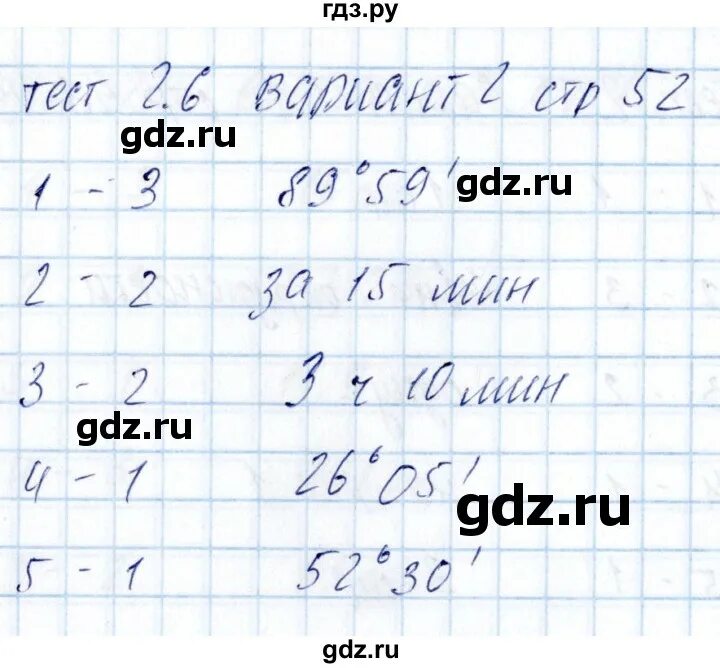 гдз.ру
тест 2.6 вариант 2 стр 52
gdz.ru
1 - 3 89°59'
gdz.ru
2 - 2 за 15 мин
3 - 2 3 ч 10 мин
gdz.ru
4 - 1 26°05'
gdz.ru
5 - 1 52°30'
gdz.ru